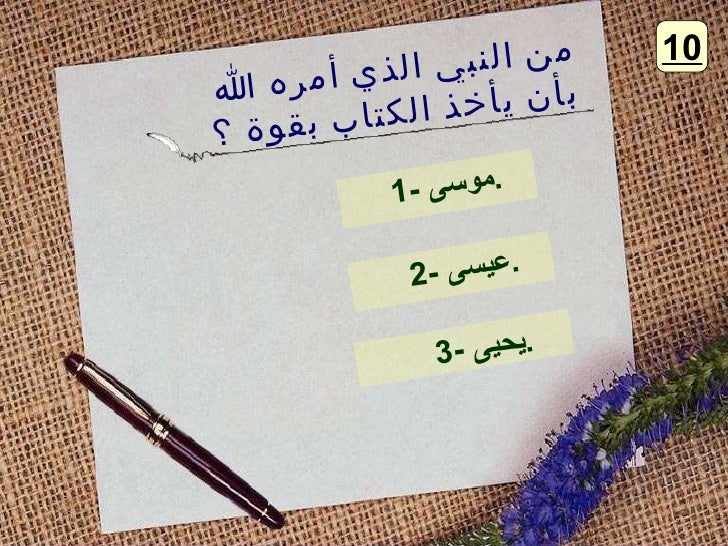 10
من النبي الذي أمره الله
بأن يأخذ الكتاب بقوة ؟
1- موسى.
2- عيسى.
3- يحيى.